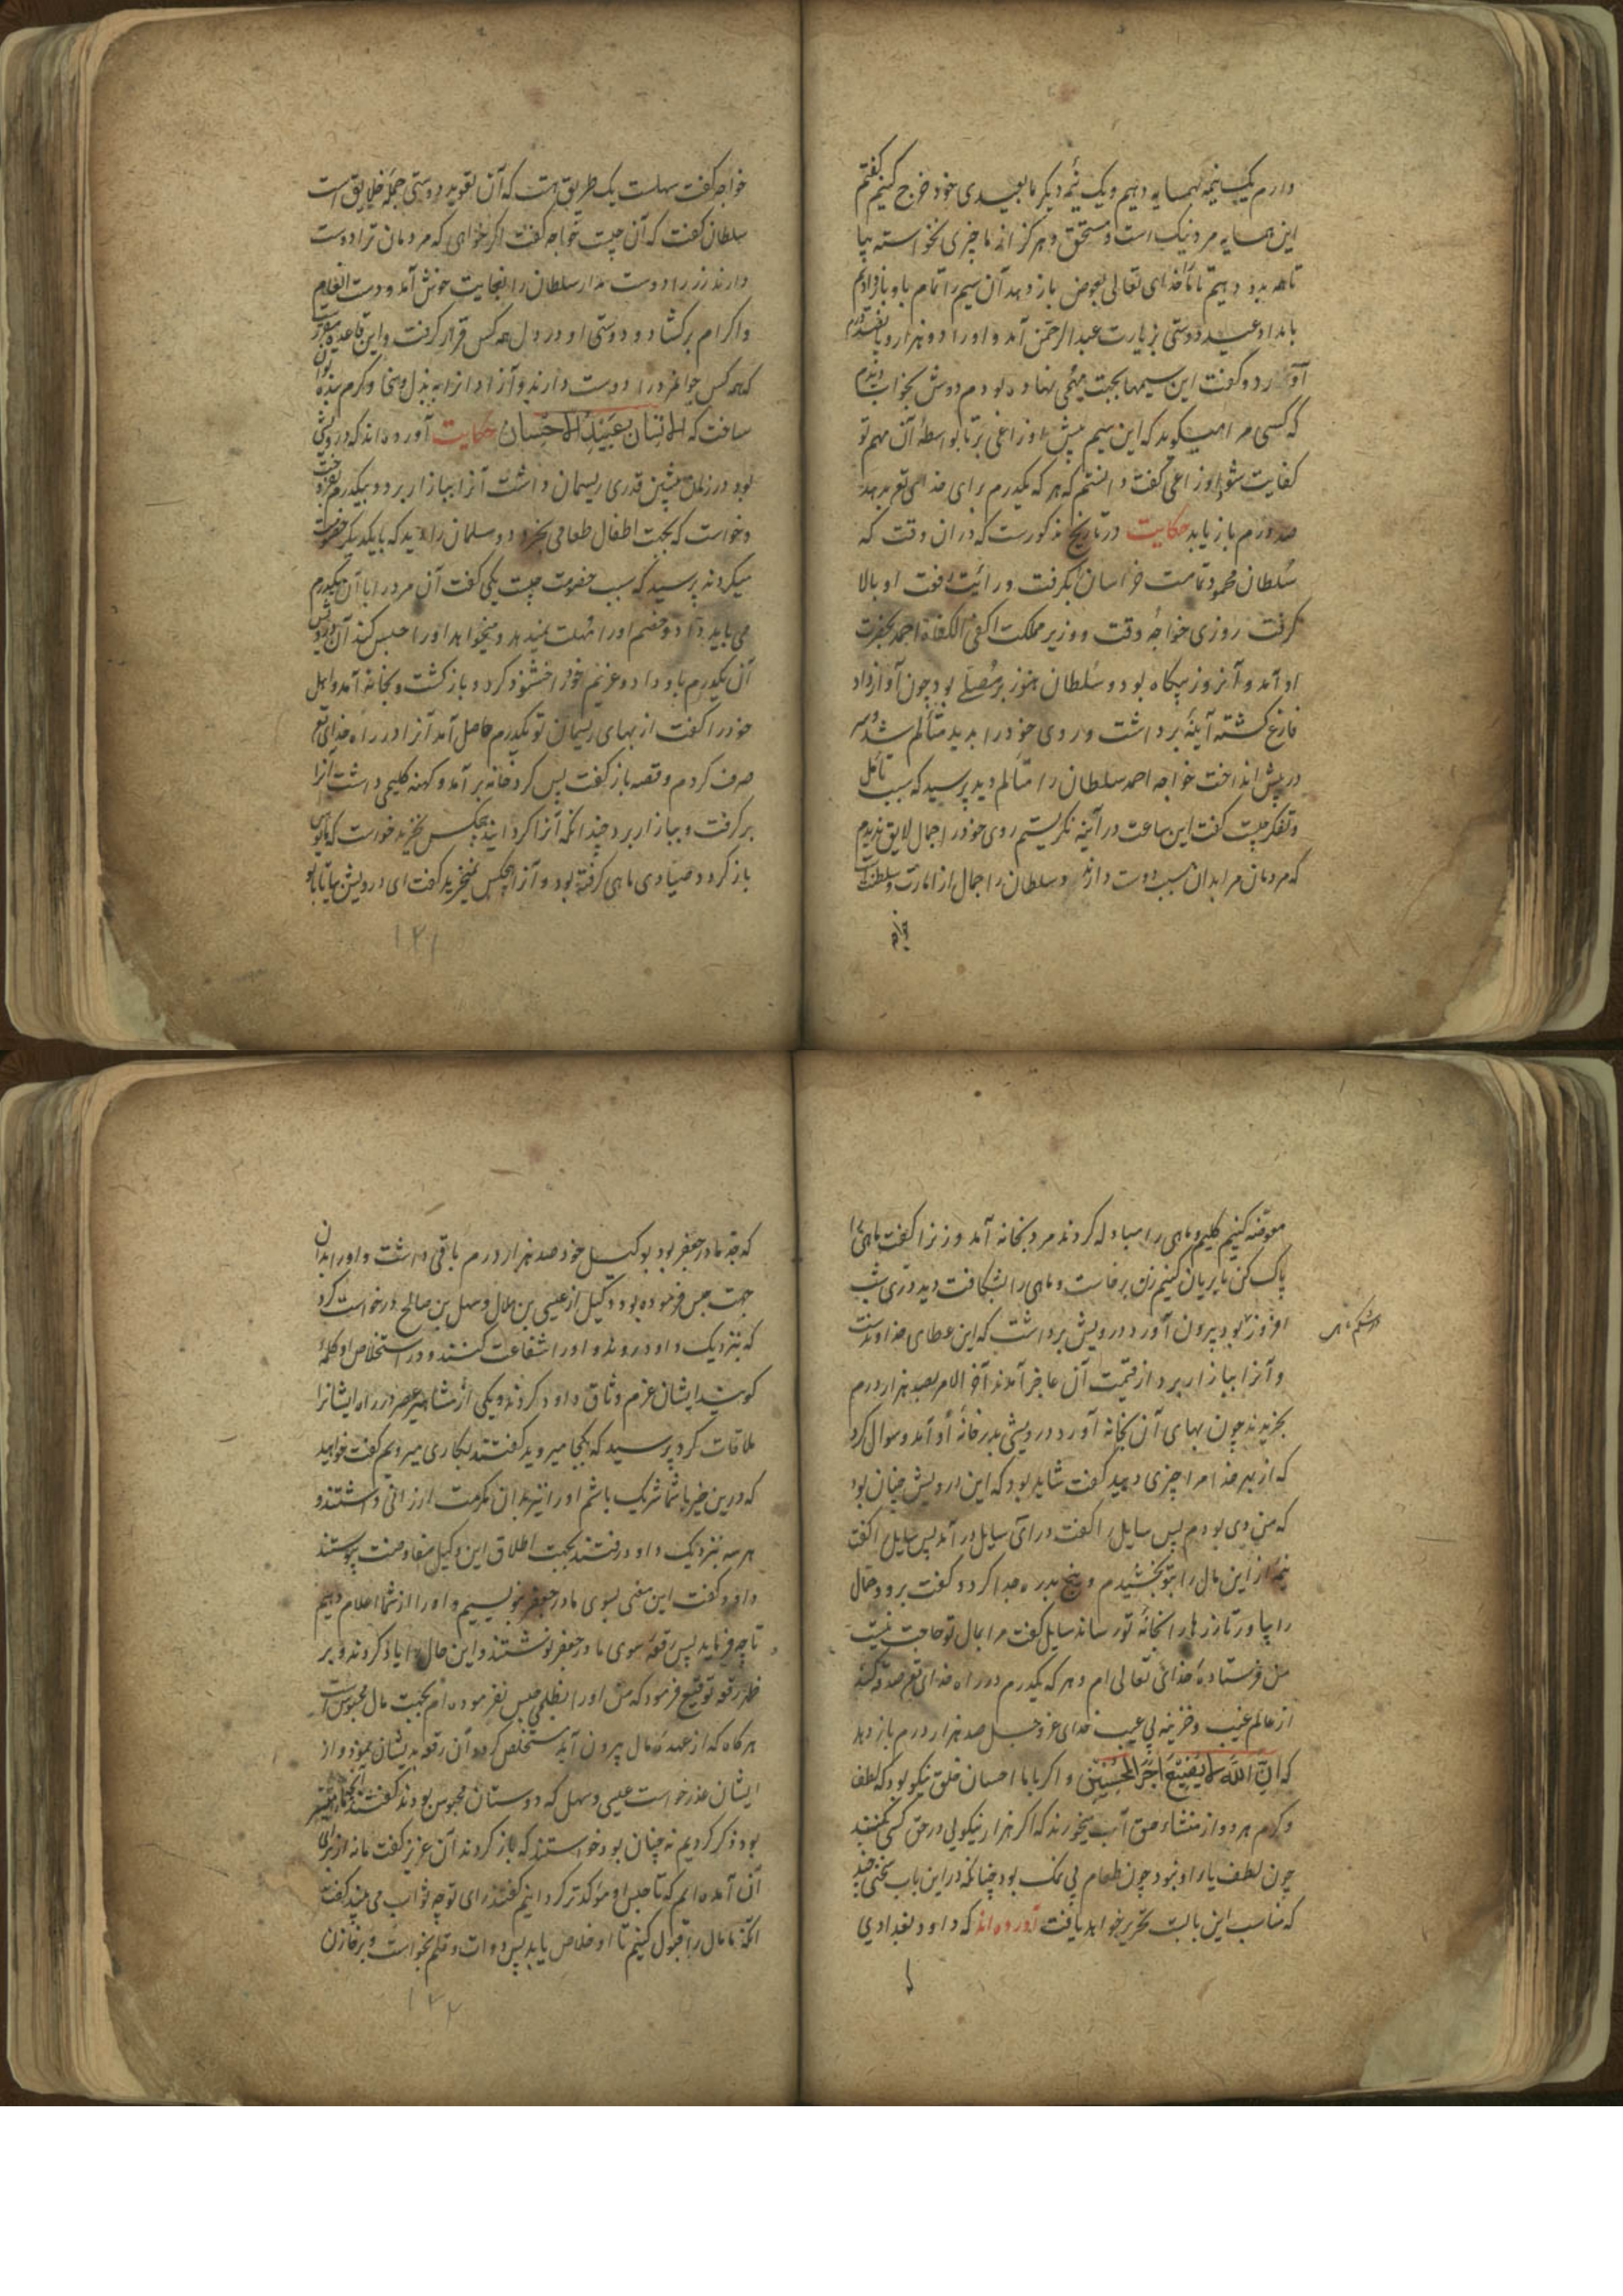 دارم یک نیمه بهمسایه دهیم و یک نیمه دیکر ما بعیدی خود خرج کنیم کفتم
این همسایه مرد نیک است و مستحق و هرکز از ما چیزی نخواسته بیا
تا همه بدو دهیم تا خدای تعالی بعوض باز دهد آن سیم را تمام باو بازدادیم
بامداد عید دوستی بزیارت عبد الرحمن آمد و او را دو هزار و پانصد درم
آورد و کفت این سیمها بجهت مهمی نهاده بودم دوش بخواب دیدم
که کسی مرا میکوید که این سیم پیش اوزاعی بر تا بواسطه آن مهم تو
کفایت شود اوزاعی کفت دانستم که هر که یکدرم برای خدای تع بدهد
صد درم باز یابد حکایت در تاریخ مذکورست که دران وقت که
سلطان محمود تمامت خراسان بکرفت و رایت رفعت او بالا
کرفت روزی خواجه وقت و وزیر مملکت اکفی الکفاة احمد بحضرت
او آمد و آنروز پکاه بود و سلطان هنوز بر مصلی بود چون از اوراد
فارغ کشته آینه برداشت و روی خود را بدید متألم شد و سر
در پیش انداخت خواجه احمد سلطان را متألم دید پرسید که سبب تأمل
و تفکر چیست کفت این ساعت در آینه نکریستم روی خود را جمال لایق ندیدم
که مردمان مرا بدان سبب دوست دارند و سلطان را جمال از امارت و سلطنت
خواجه کفت سهلست یک طریق هست که آن تعوید دوستی جمله خلایق است
سلطان کفت که آن چیست خواجه کفت اکر خواهی که مردمان ترا دوست
دارند زر را دوست مدار سلطان را بغایت خوش آمد و دست انعام
و اکرام برکشاد و دوستی او در دل همه کس قرار کرفت و این قاعده
که همه کس جوانمرد را دوست دارند و آزاد انرا به بذل و سخا و کرم بنده توان
ساخت که الانسان عبید الاحسان حکایت آورده‌اند که درویشی
بود در زمان پیشین قدری ریسمان داشت آنرا ببازار برد و بیکدرم بفروخت
و خواست که بجهت اطفال طعامی بخرد دو مسلمان را دید که با یکدیکر خصومت
میکردند پرسید که سبب خصومت چیست یکی کفت آن مرد را با آن یکدرم
می باید داد و خصم او را مهلت نمیدهد و میخواهد او را حبس کند آن درویش
آن یکدرم باو داد و غریم او را خشنود کرد و باز کشت و بخانه آمد و اهل
خود را کفت از بهای ریسمان تو یکدرم حاصل آمد آنرا در راه خدای تع
صرف کردم و قصه باز کفت پس کرد خانه برآمد و کهنه کلیمی داشت آنرا
برکرفت و ببازار برد چندانکه آنرا کردانید هیچکس نخرید خواست که
باز کردد صیادی ماهی کرفته بود و آنرا هیچکس نمیخرید کفت ای درویش بیا تا
۱۲۱
معاوضه کنیم کلیم و ماهی را مبادله کردند مرد بخانه آمد و زنرا کفت ماهی را
پاک کن تا بریان کنیم زن برخاست و ماهی را بشکافت دید دری شب
افروز بود بیرون آورد درویش برداشت که این عطای خداوندست
در شکم ماهی
و آنرا ببازار برد از قیمت آن عاجز آمدند آخر الامر بصد هزار درم
بخریدند چون بهای آن بخانه آورد درویشی بدر خانه او آمد و سوال کرد
که از بهر خدا مرا چیزی دهید کفت شاید بود که این درویش چنان بود
که من دی بودم پس سایل را کفت در آی سایل در آمد پس سایل را کفت
نیمه از این مال را بتو بخشیدم و پنج بدره جدا کرد و کفت برو و حمال
را بیاور تا زرها را بخانه تو رساند سایل کفت مرا بمال تو حاجت نیست
من فرستاده خدای تعالی ام و هر که یکدرم در راه خدای تع صدقه کند
از عالم غیب و خزینه بی عیب خدای عز و جل صد هزار درم باز دهد
که ان الله لا یضیع اجر المحسنین و اکر با با احسان خلق نیکو بود که لطف
و کرم هر دو از منشاء حق آب میخورند که اکر هزار نیکویی در حق کسی کنند
چون لطف یار او نبود چون طعام بی نمک بود چنانکه در این باب سخنی چند
که مناسب این بابست تحریر خواهد یافت آورده‌اند که داود بغدادی
که جد مادر جعفر بود بوکیل خود صد هزار درم باقی داشت و او را بدان
جهت حبس فرموده بود وکیل از عیسی بن هلال و سهل بن صالح درخواست کرد
که بنزدیک داود روند و او را شفاعت کنند و در استخلاص او کلمه
کویند ایشان عزم وثاق داود کردند و یکی از مشاهیر عصر در راه ایشانرا
ملاقات کرد پرسید که بکجا میروید کفتند بکاری میرویم کفت خواهید
که درین خیر با شما شریک باشم او را نیز بدان مکرمت ارزانی داشتند و
هر سه بنزدیک داود رفتند بجهت اطلاق این وکیل مفاوضت پیوستند
داود کفت این معنی بسوی مادر جعفر بنویسیم و او را از شما اعلام دهیم
تا چه فرماید پس رقعه سوی مادر جعفر نوشتند و این حال را یاد کردند و بر
ظهر رقعه توقیع فرمود که من او را بظلم حبس نفرموده‌ام بجهت مال محبوس است
هرکاه که از عهده مال بیرون آید مستخلص کردد آن رقعه بدیشان نمود و از
ایشان عذر خواست عیسی و سهل که دوستان محبوس بودند کفتند
بود ذکر کردیم نه چنان بود خواستند که باز کردند آن عزیز کفت ما نه از برای
آن آمده‌ایم که تا حبس او مؤکدتر کردانیم کفتند رای تو چه ثواب می بیند کفت
آنکه ما مال را قبول کنیم تا او خلاص یابد پس دوات و قلم بخواست و بر خازن
۱۲۲